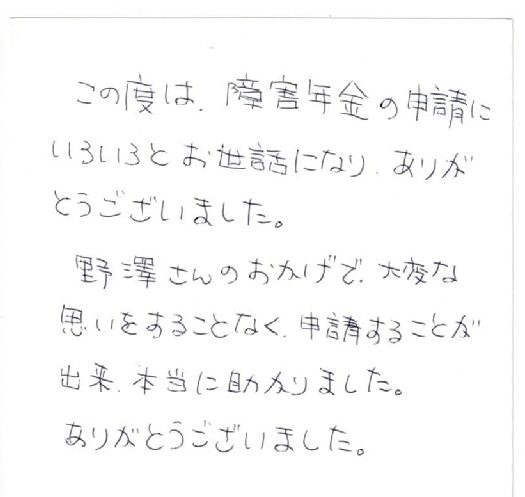 この度は、障害年金の申請に
いろいろとお世話になり、ありが
とうございました。
野澤さんのおかげで、大変な
思いをすることなく、申請することが
出来、本当に助かりました。
ありがとうございました。